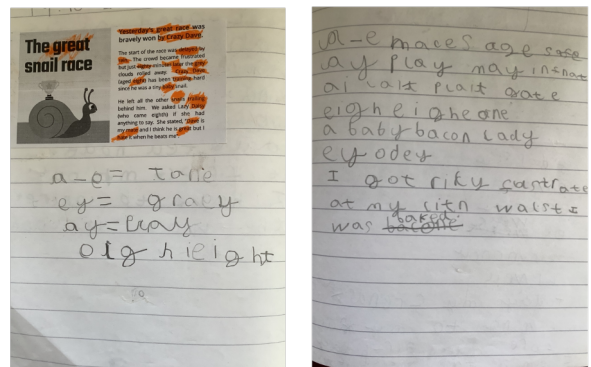 The great
snail race
Yesterday's great race was
bravely won by Crazy Dave.
The start of the race was delayed by
rain. The crowd became frustrated
but just eighty minutes later the grey
clouds rolled away. Crazy Dave
(aged eight) has been training hard
since he was a tiny baby snail.
He left all the other snails trailing
behind him. We asked Lazy
(who came eighth) if she had
anything to say. She stated, "Dave is
my mate and I think he is great but I
hate it when he beats me."
a-e = tane
ey = graey
ay = tray
eigh ieight
a-e maces age
ay play may
ai plait
eigh eigh
a baby bacon lady
ey odey
I got riky
at my litn walst I
baked
was bacone